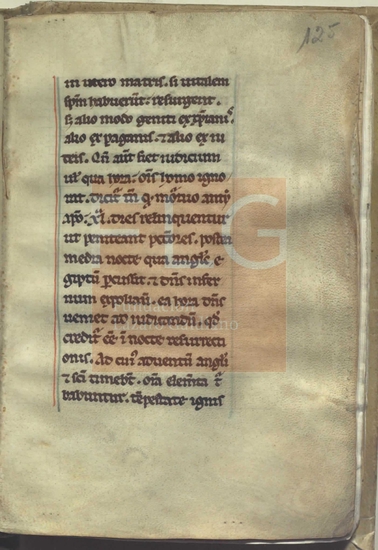 125
in utero matris. si uitalem
spm habuerūt. resurgent.
si alio modo geniti ex xp̄ianis.
alio ex paganis. & alio ex iu
deis. Qn̄ aūt fiet iudicium
uł qua hora. om̄s homo igno
rat. dicit̄ tn̄ q̄ mortuo anti
xpo. xl. dies relinquentur
ut peniteant pctōres. postea
media nocte qua anglꝰ e
giptū percussit. & dn̄s infer
num expoliauit. ea hora dn̄s
ueniet ad iudicandū. qd̄
credit̄ ēe ī nocte resurrecti
onis. Ad cuiꝰ aduentū angli
& sc̄i timebt̄. om̄a elem̄ta t̄
babuntur. tēpestate ignis
FLG